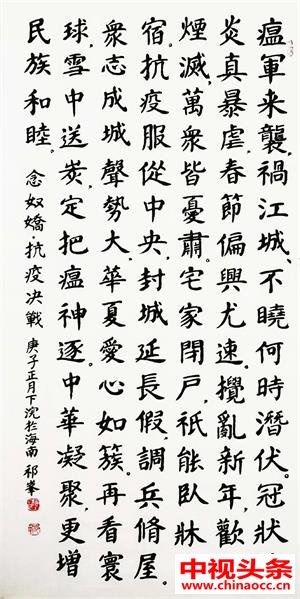 瘟軍来襲,禍江城、不曉何時潛伏。冠狀
炎真暴虐,春節偏興尤速。攪亂新年,歡
煙滅,萬衆皆憂肅。宅家閉戶,祇能臥牀
宿。抗疫服從中央,封城延長假,調兵脩屋。
衆志成城聲勢大,華夏愛心如簇。再看寰
球,雪中送炭,定把瘟神逐。中華凝聚,更增
民族和睦。 念奴嬌·抗疫决戰 庚子正月下浣於海南 祁峯
中视头条
Chinaocc.cn